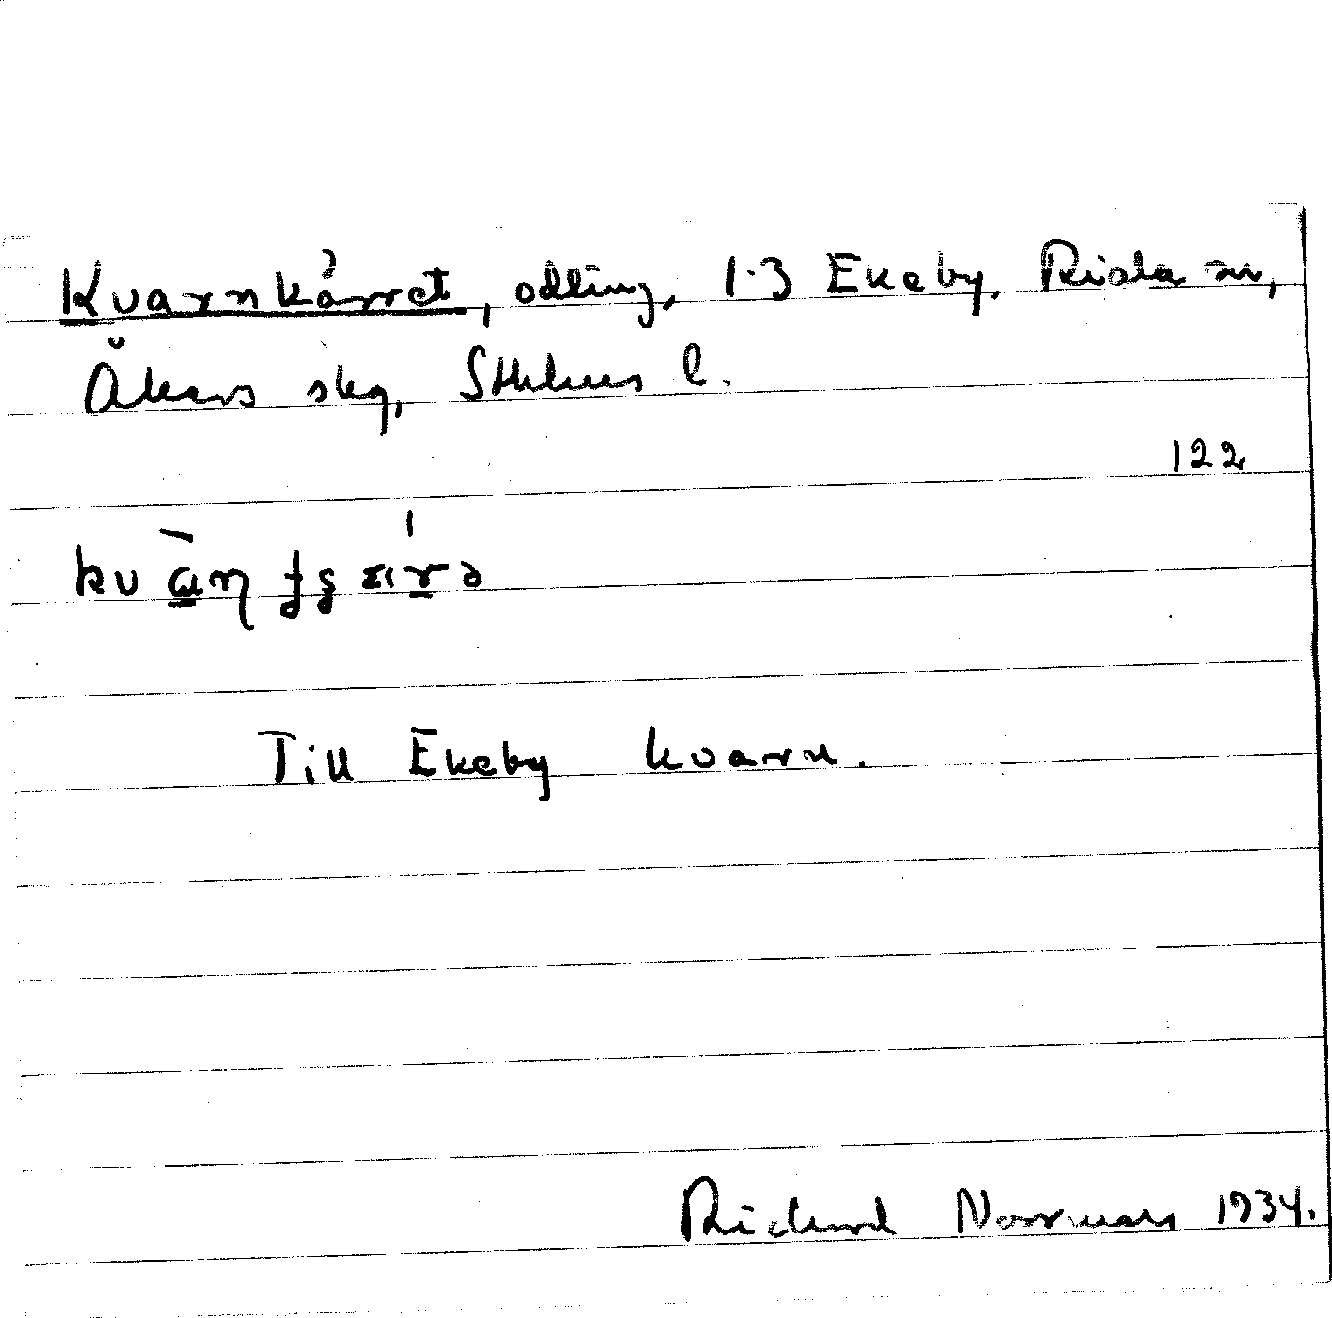 Kvarnkärret, odling, 1-3 Ekeby, Riala sn,
Åkers skg, Sthlms l.
122
Till Ekeby kvarn.
Richard Norrman 1934.